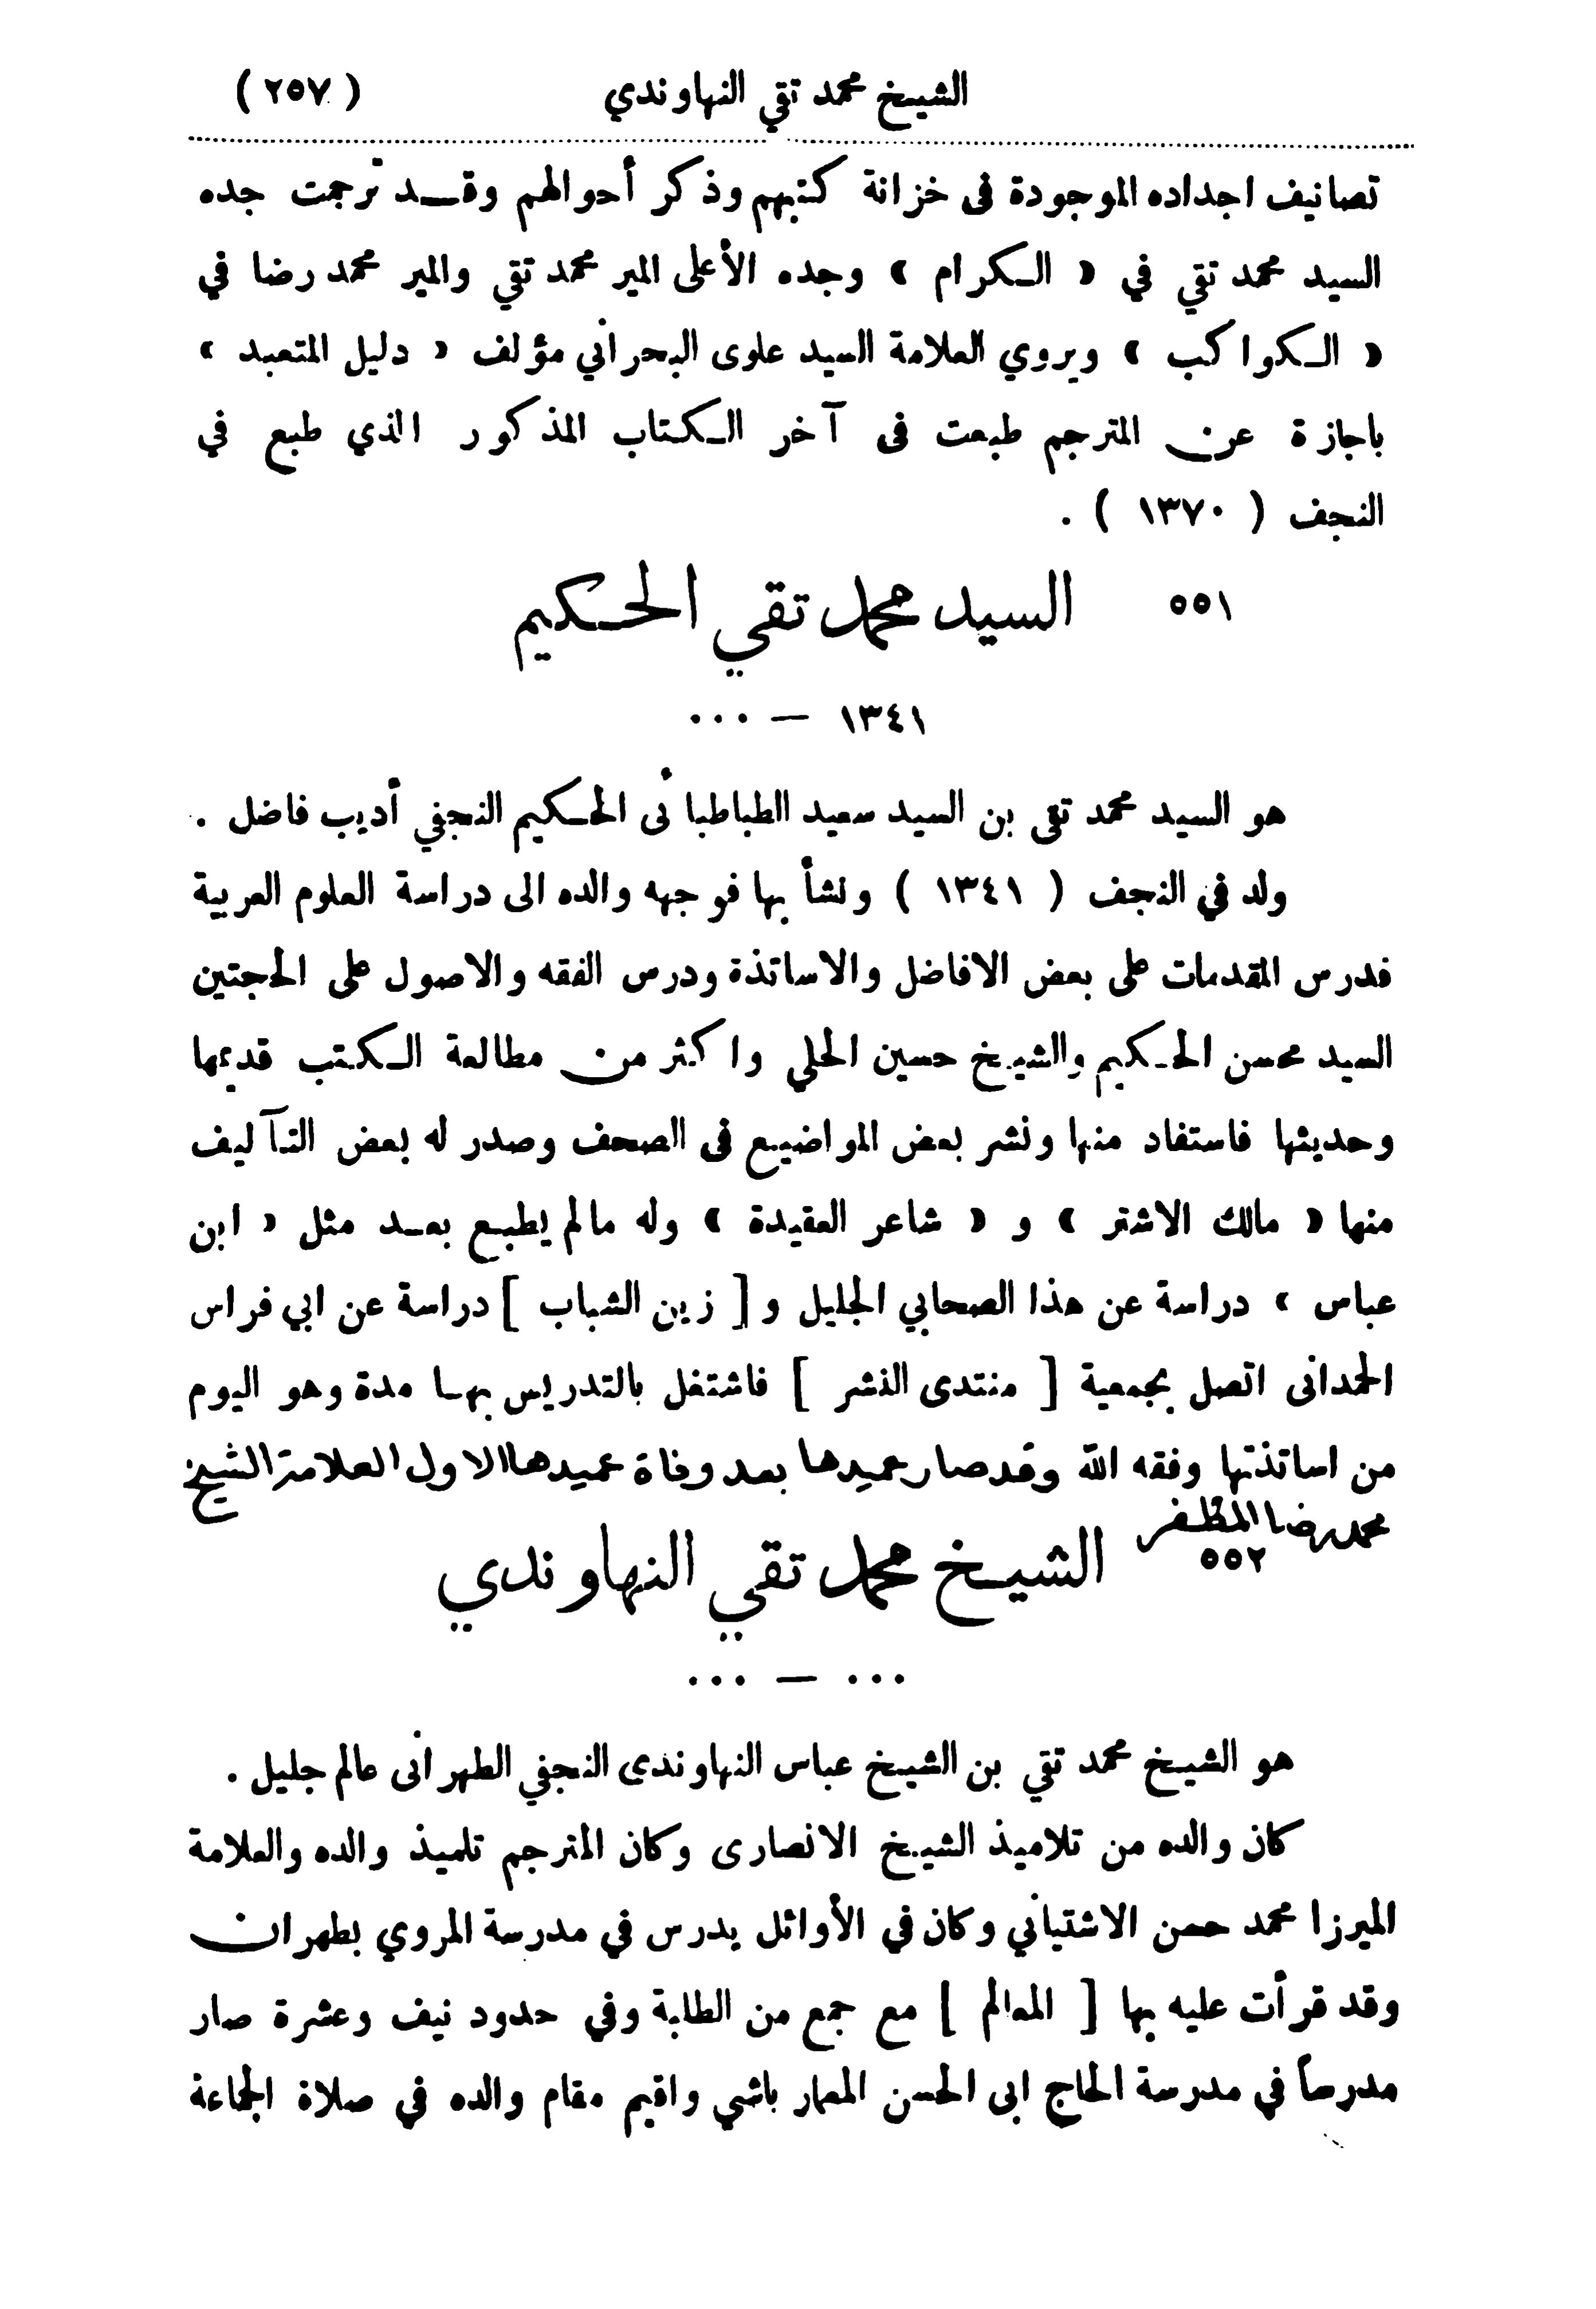 الشيخ محمد تقي النهاوندي ( ٢٥٧ )
تصانيف اجداده الموجودة فى خزانة كتبهم وذكر أحوالهم وقد ترجمت جده
السيد محمد تقي في « الكرام » وجده الأعلى المير محمد تقي والمير محمد رضا في
« الكواكب » ويروي العلامة السيد علوى البحراني مؤلف « دليل المتعبد »
باجازة عن المترجم طبعت فى آخر الكتاب المذكور الذي طبع في
النجف ( ١٣٧٠ ) .
٥٥١ السيد محمد تقي الحكيم
١٣٤١ — ...
هو السيد محمد تقى بن السيد سعيد الطباطبائى الحكيم النجفي أديب فاضل .
ولد في النجف ( ١٣٤١ ) ونشأ بها فوجهه والده الى دراسة العلوم العربية
فدرس المقدمات على بعض الافاضل والاساتذة ودرس الفقه والاصول على الحجتين
السيد محسن الحكيم والشيخ حسين الحلي واكثر من مطالعة الكتب قديمها
وحديثها فاستفاد منها ونشر بعض المواضيع فى الصحف وصدر له بعض التآليف
منها « مالك الاشتر » و « شاعر العقيدة » وله مالم يطبع بعد مثل « ابن
عباس » دراسة عن هذا الصحابي الجليل و [ زين الشباب ] دراسة عن ابي فراس
الحمدانى اتصل بجمعية [ منتدى النشر ] فاشتغل بالتدريس بها مدة وهو اليوم
من اساتذتها وفقه الله وقد صار عميدها بعد وفاة عميدها الاول العلامة الشيخ
محمد رضا المظفر
٥٥٢ الشيخ محمد تقي النهاوندي
... — ...
هو الشيخ محمد تقي بن الشيخ عباس النهاوندى النجفي الطهرانى عالم جليل .
كان والده من تلاميذ الشيخ الانصارى وكان المترجم تلميذ والده والعلامة
الميرزا محمد حسن الاشتياني وكان في الأوائل يدرس في مدرسة المروي بطهران
وقد قرأت عليه بها [ المعالم ] مع جمع من الطلبة وفي حدود نيف وعشرة صار
مدرساً في مدرسة الحاج ابى الحسن المعمار باشي واقيم مقام والده في صلاة الجماعة